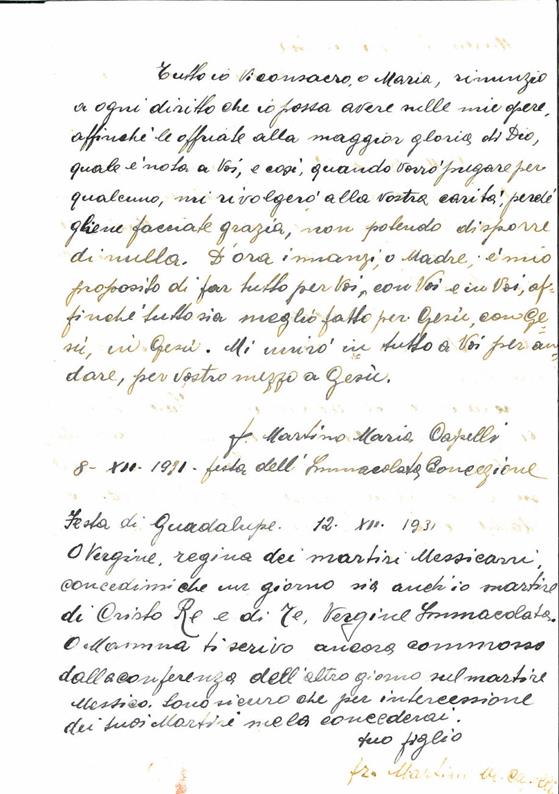 Tutto io Vi consacro, o Maria, rinunzio
a ogni diritto che io possa avere nelle mie opere,
affinché le offriate alla maggior gloria di Dio,
quale è nota a Voi, e così, quando vorrò pregare per
qualcuno, mi rivolgerò alla vostra carità, perché
gliene facciate grazia, non potendo disporre
di nulla. D'ora innanzi, o Madre, è mio
proposito di far tutto per Voi, con Voi e in Voi, af-
finché tutto sia meglio fatto per Gesù, con Ge-
sù, in Gesù. Mi unirò in tutto a Voi per an-
dare, per vostro mezzo a Gesù.
f. Martino Maria Capelli
8- XII- 1931 - festa dell'Immacolata Concezione
Festa di Guadalupe. 12- XII- 1931
O Vergine, regina dei martiri Messicani,
concedimi che un giorno sia anch'io martire
di Cristo Re e di Te, Vergine Immacolata.
O Mamma ti scrivo ancora commosso
dalla conferenza dell'altro giorno sul martire
Messico. Sono sicuro che per intercessione
dei tuoi Martiri me la concederai.
tuo figlio
fr. Martino M.